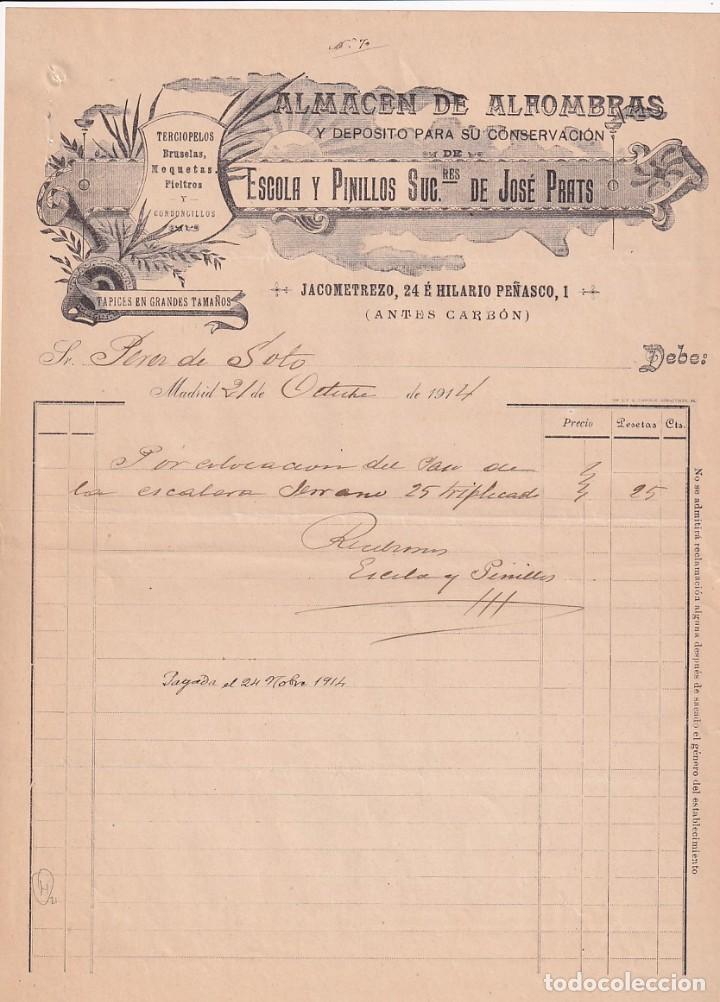 Nº 7º
ALMACEN DE ALFOMBRAS
Y DEPOSITO PARA SU CONSERVACIÓN
DE
ESCOLA Y PINILLOS SUC.RES DE JOSÉ PRATS
TERCIOPELOS
Bruselas,
Moquetas
Fieltros
Y
CORDONCILLOS
TAPICES EN GRANDES TAMAÑOS
JACOMETREZO, 24 É HILARIO PEÑASCO, 1
(ANTES CARBÓN)
Sr. Perez de Soto Debe:
Madrid 21 de Octubre de 1914
Precio Pesetas Cts.
Por colocacion del paso de
la escalera Serrano 25 triplicado 25
Recibimos
Escola y Pinillos
Pagada el 24 Nobre 1914
No se admitirá reclamación alguna después de sacado el género del establecimiento
todocoleccion.net